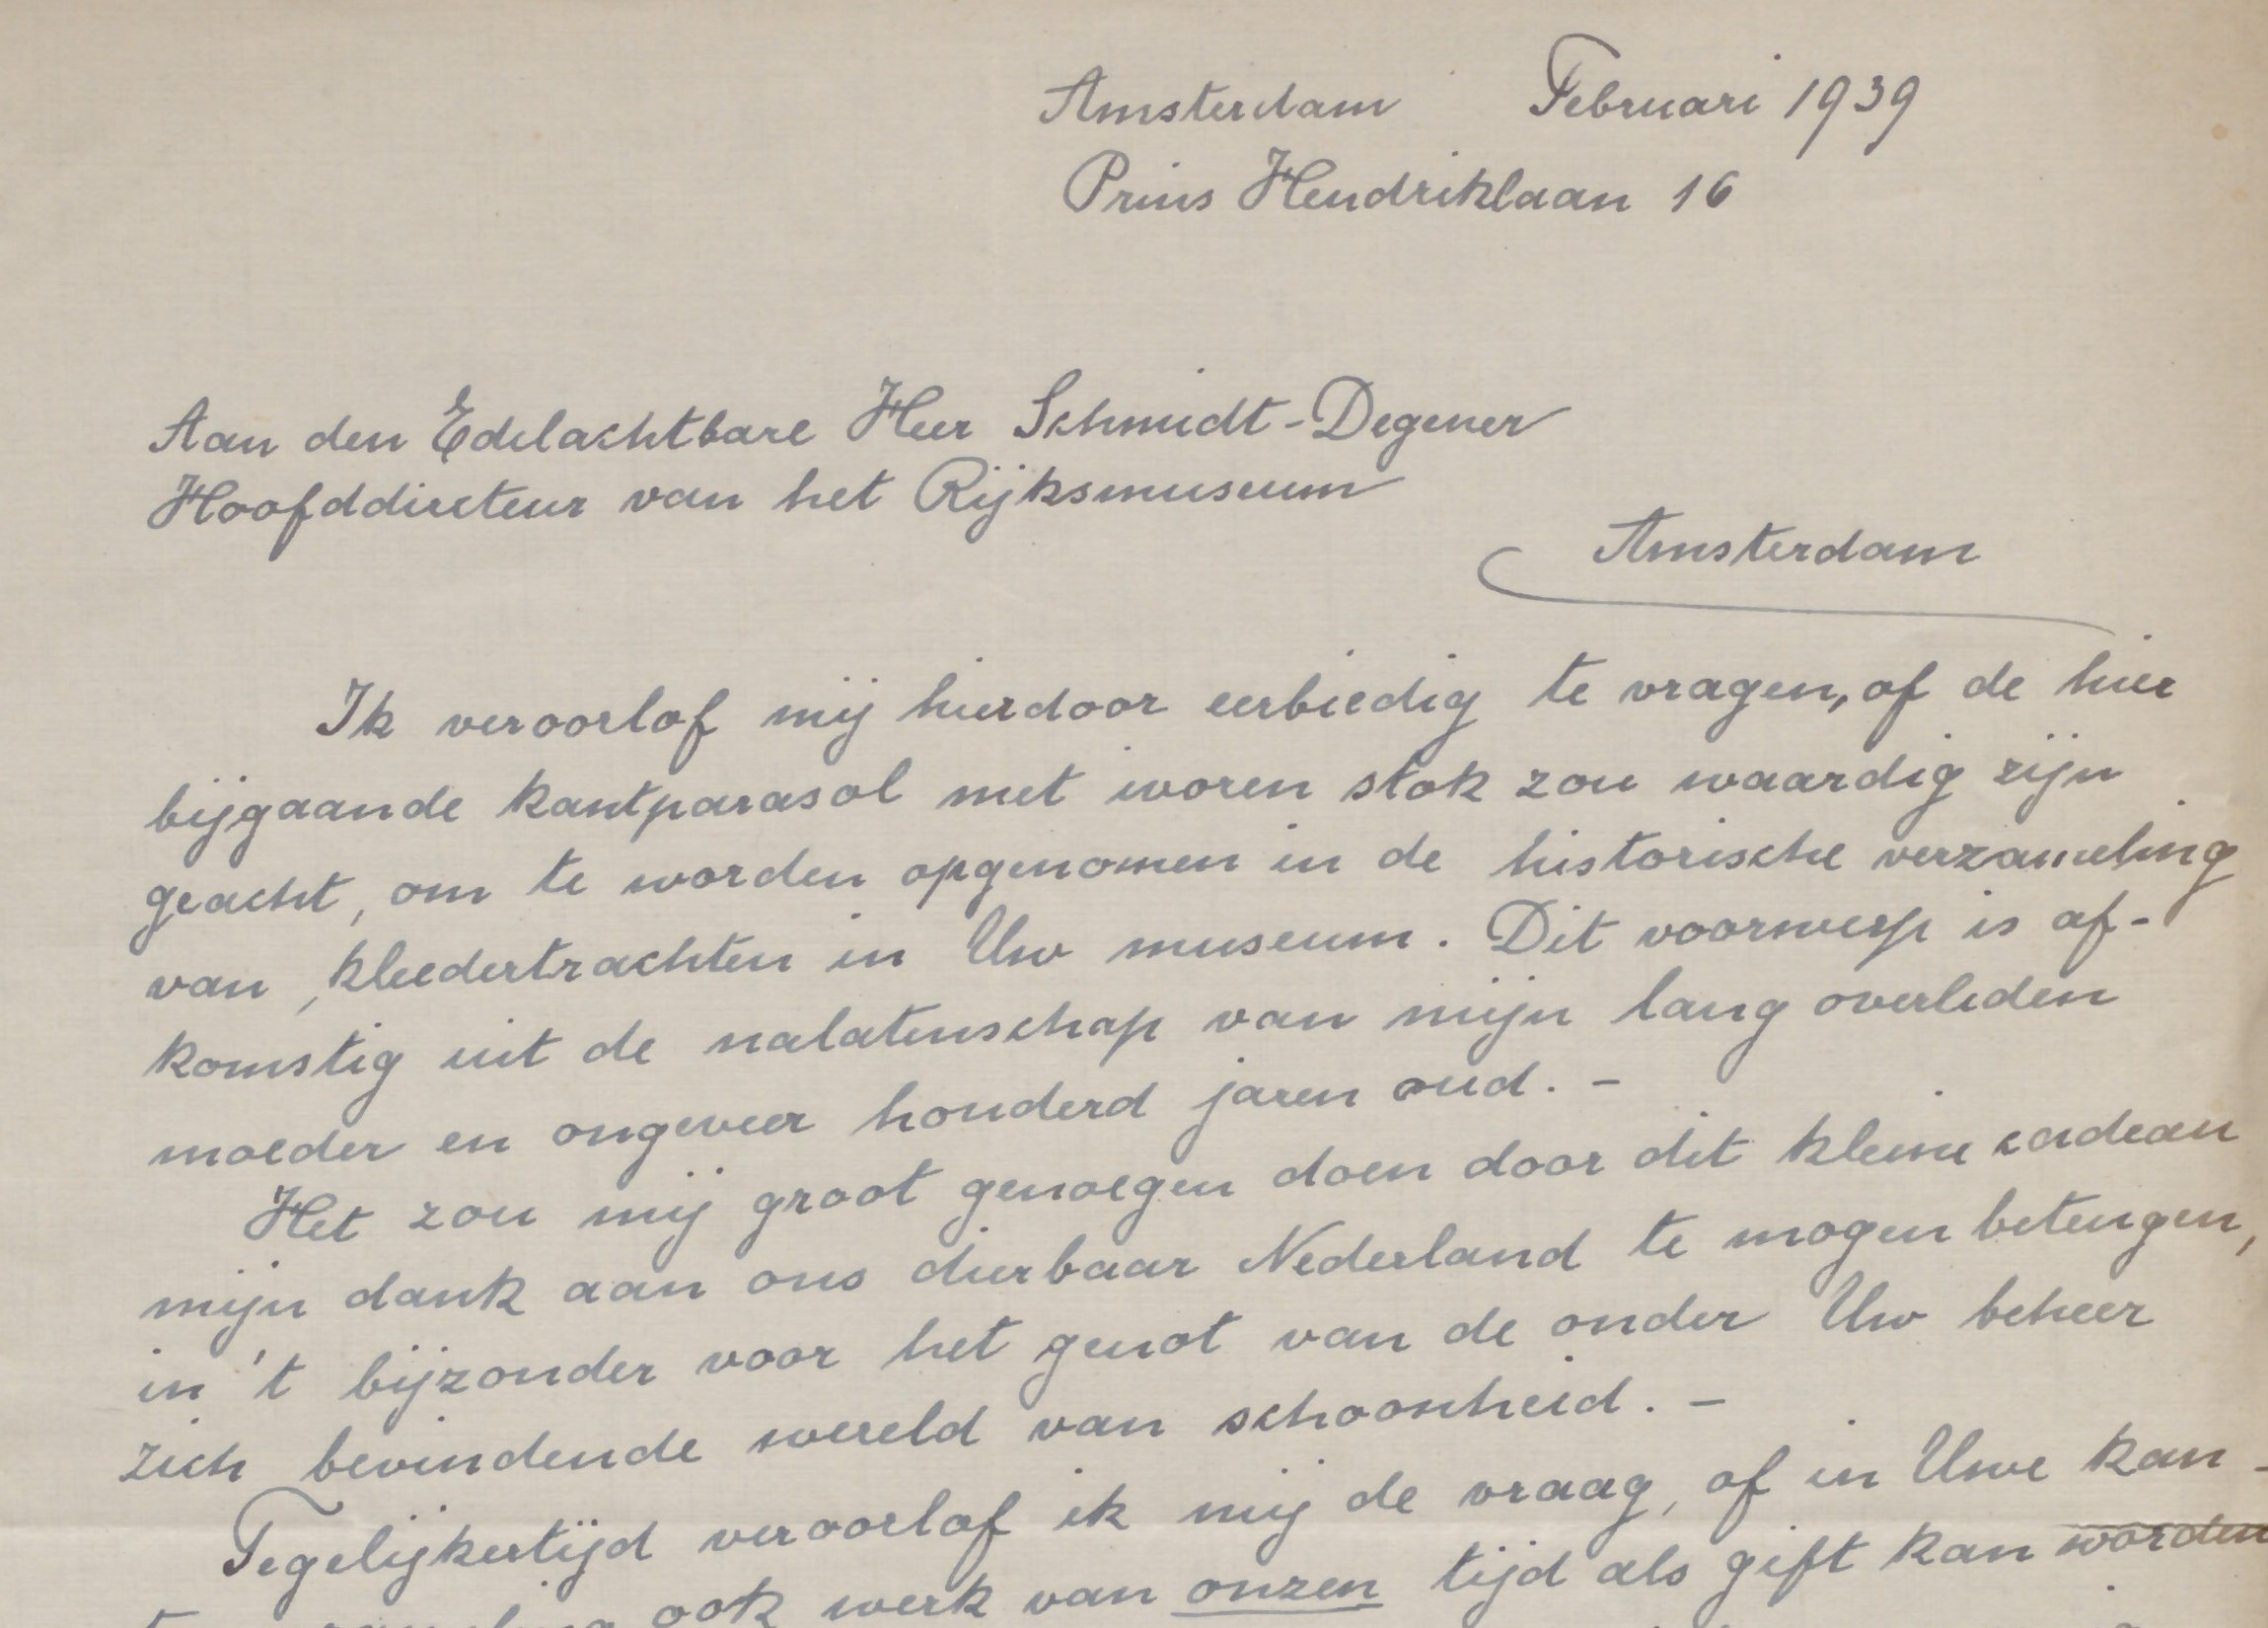 Amsterdam Februari 1939
Prins Hendriklaan 16
Aan den Edelachtbare Heer Schmidt-Degener
Hoofddirecteur van het Rijksmuseum
Amsterdam
Ik veroorlof mij hierdoor eerbiedig te vragen, of de hier
bijgaande kantparasol met ivoren stok zou waardig zijn
geacht, om te worden opgenomen in de historische verzameling
van kleedertrachten in Uw museum. Dit voorwerp is af-
komstig uit de nalatenschap van mijn lang overleden
moeder en ongeveer honderd jaren oud. -
Het zou mij groot genoegen doen door dit kleine cadeau
mijn dank aan ons dierbaar Nederland te mogen betengen,
in 't bijzonder voor het genot van de onder Uw beheer
zich bevindende wereld van schoonheid. -
Tegelijkertijd veroorlof ik mij de vraag, of in Uwe kan-
ook werk van onzen tijd als gift kan worden